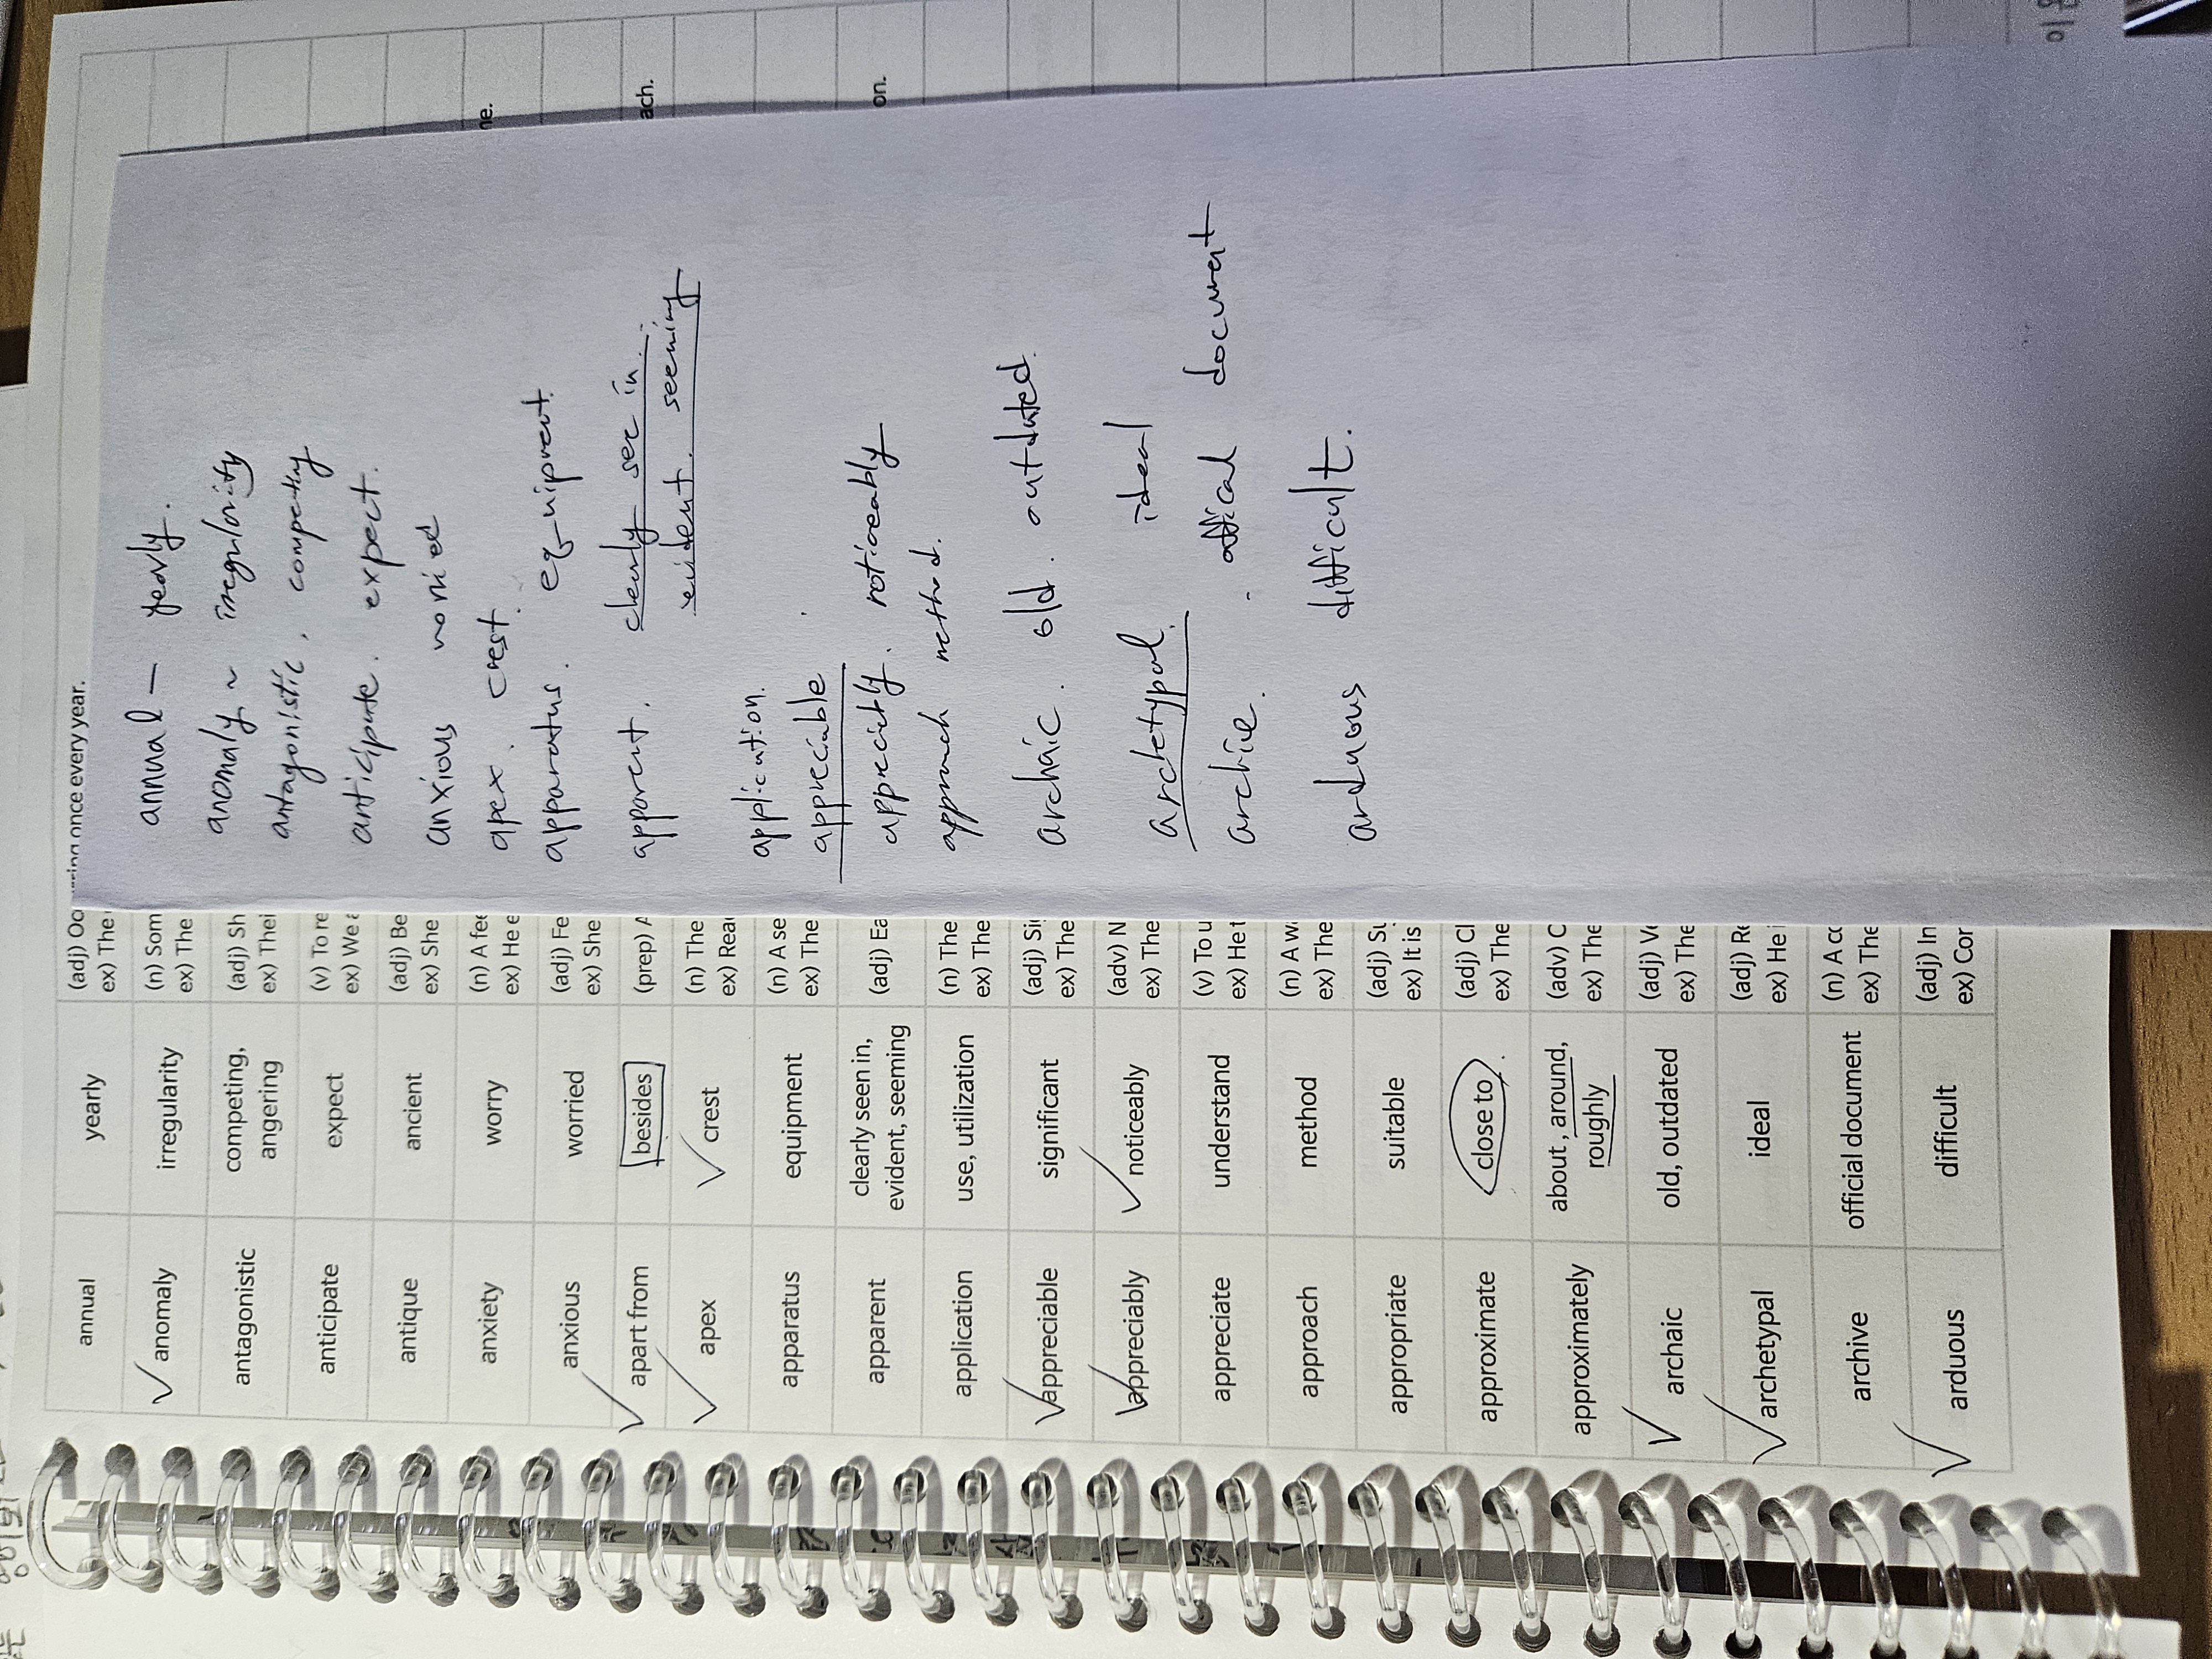 annual
yearly
(adj) Oc
once every year.
ex) The
anomaly
irregularity
(n) Som
ex) The
antagonistic
competing,
angering
(adj) Sh
ex) Thei
anticipate
expect
(v) To re
ex) We a
antique
ancient
(adj) Be
ex) She
anxiety
worry
(n) A fee
ex) He e
ne.
anxious
worried
(adj) Fe
ex) She
apart from
besides
(prep) A
ach.
apex
crest
(n) The
ex) Rea
apparatus
equipment
(n) A se
ex) The
apparent
clearly seen in,
evident, seeming
(adj) Ea
on.
application
use, utilization
(n) The
ex) The
appreciable
significant
(adj) Si
ex) The
appreciably
noticeably
(adv) N
ex) The
appreciate
understand
(v) To u
ex) He t
approach
method
(n) A w
ex) The
appropriate
suitable
(adj) Su
ex) It is
approximate
close to
(adj) Cl
ex) The
approximately
about, around,
roughly
(adv) C
ex) The
archaic
old, outdated
(adj) Ve
ex) The
archetypal
ideal
(adj) Re
ex) He i
archive
official document
(n) A co
ex) The
arduous
difficult
(adj) In
ex) Cor
annual — yearly.
anomaly ~ irregularity
antagonistic, competing
anticipate. expect.
anxious worried
apex. crest.
apparatus. equipment.
apparent. clearly see in.
evident. seeming
application.
appreciable
appreciatly. noticeably
approach method.
archaic. old. outdated.
archetypal. ideal
archive. offical document
arduous difficult.